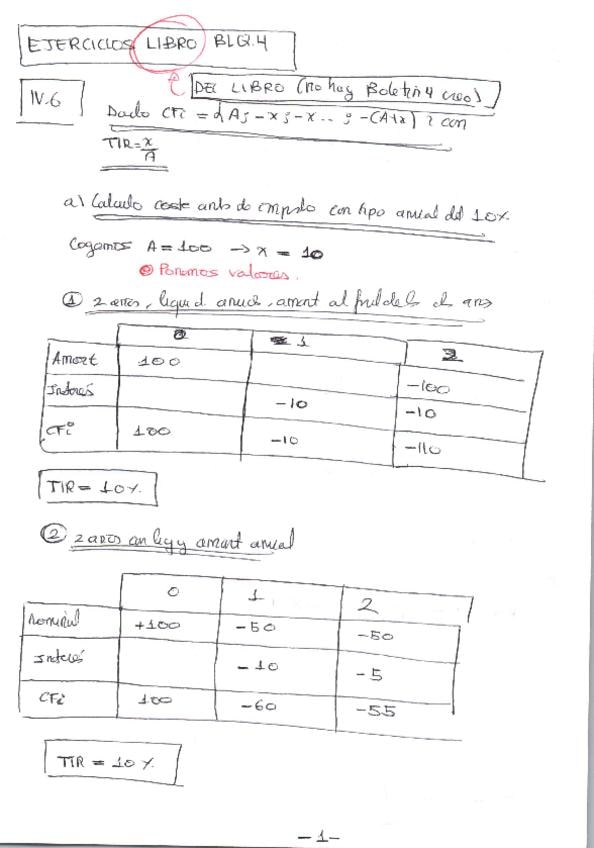 EJERCICIOS LIBRO BLQ.4
DEL LIBRO (no hay Boletin 4 creo)
IV.6
Dado CFi = {A; -x; -x... ; -(A+x)} con
TIR = x/A
a) Calculo coste antes de impsto con tipo anual del 10%.
Cogamos A = 100 → x = 10
Ponemos valores.
① 2 años, liquid. anual, amort al final de los
0 1 2
Amort 100 -100
Interés -10 -10
CFi 100 -10 -110
TIR = 10%
② 2 años con liq y amort anual
0 1 2
Nominal +100 -50 -50
Interés -10 -5
CFi 100 -60 -55
TIR = 10%
-1-